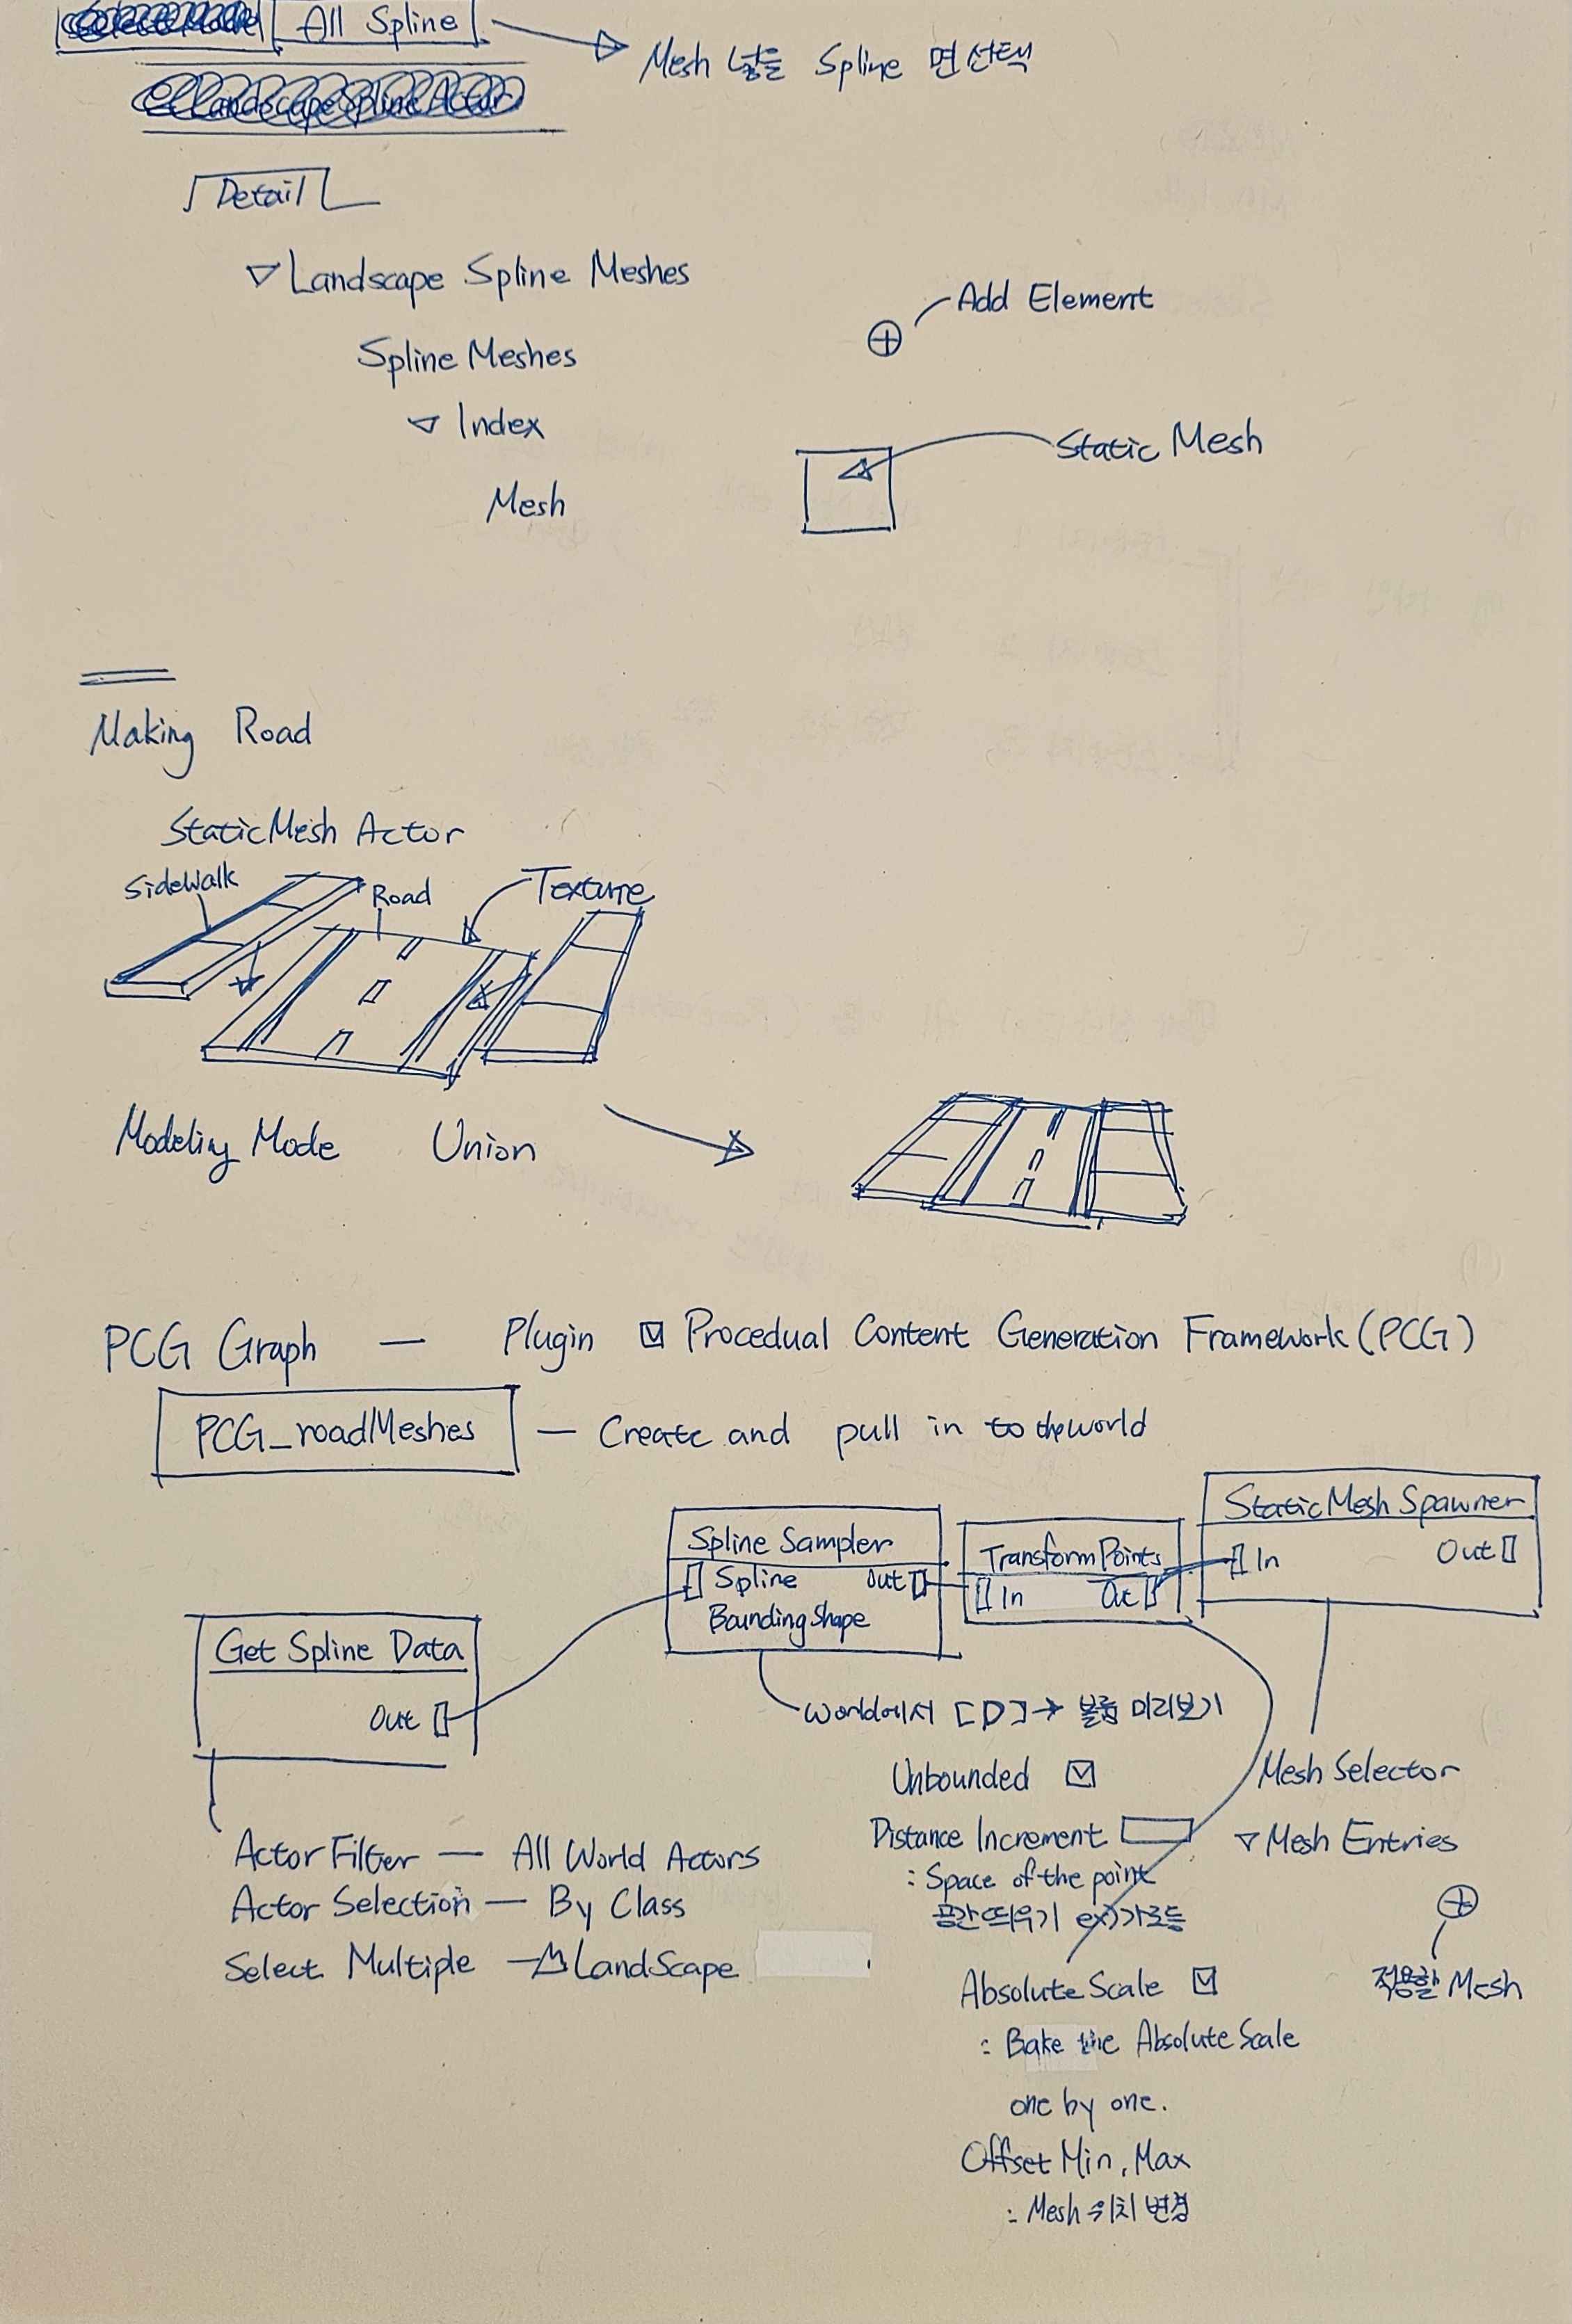 All Spline
Mesh 넣을 Spline 면 선택
Detail
▽ Landscape Spline Meshes
Add Element
Spline Meshes
▽ Index
Static Mesh
Mesh
Making Road
StaticMesh Actor
SideWalk
Road
Texture
Modeling Mode Union
PCG Graph — Plugin ☑ Procedual Content Generation Framework (PCG)
PCG_roadMeshes — Create and pull in to the world
StaticMesh Spawner
In Out
Spline Sampler
Spline Out
Bounding Shape
Transform Points
In Out
Get Spline Data
Out
World에서 [D] → 볼륨 미리보기
Unbounded ☑
Distance Increment
: Space of the point
공간 띄우기 ex) 가로등
Mesh Selector
▽ Mesh Entries
적용할 Mesh
Actor Filter — All World Actors
Actor Selection — By Class
Select Multiple — LandScape
Absolute Scale ☑
: Bake the Absolute Scale
one by one.
Offset Min, Max
: Mesh 위치 변경